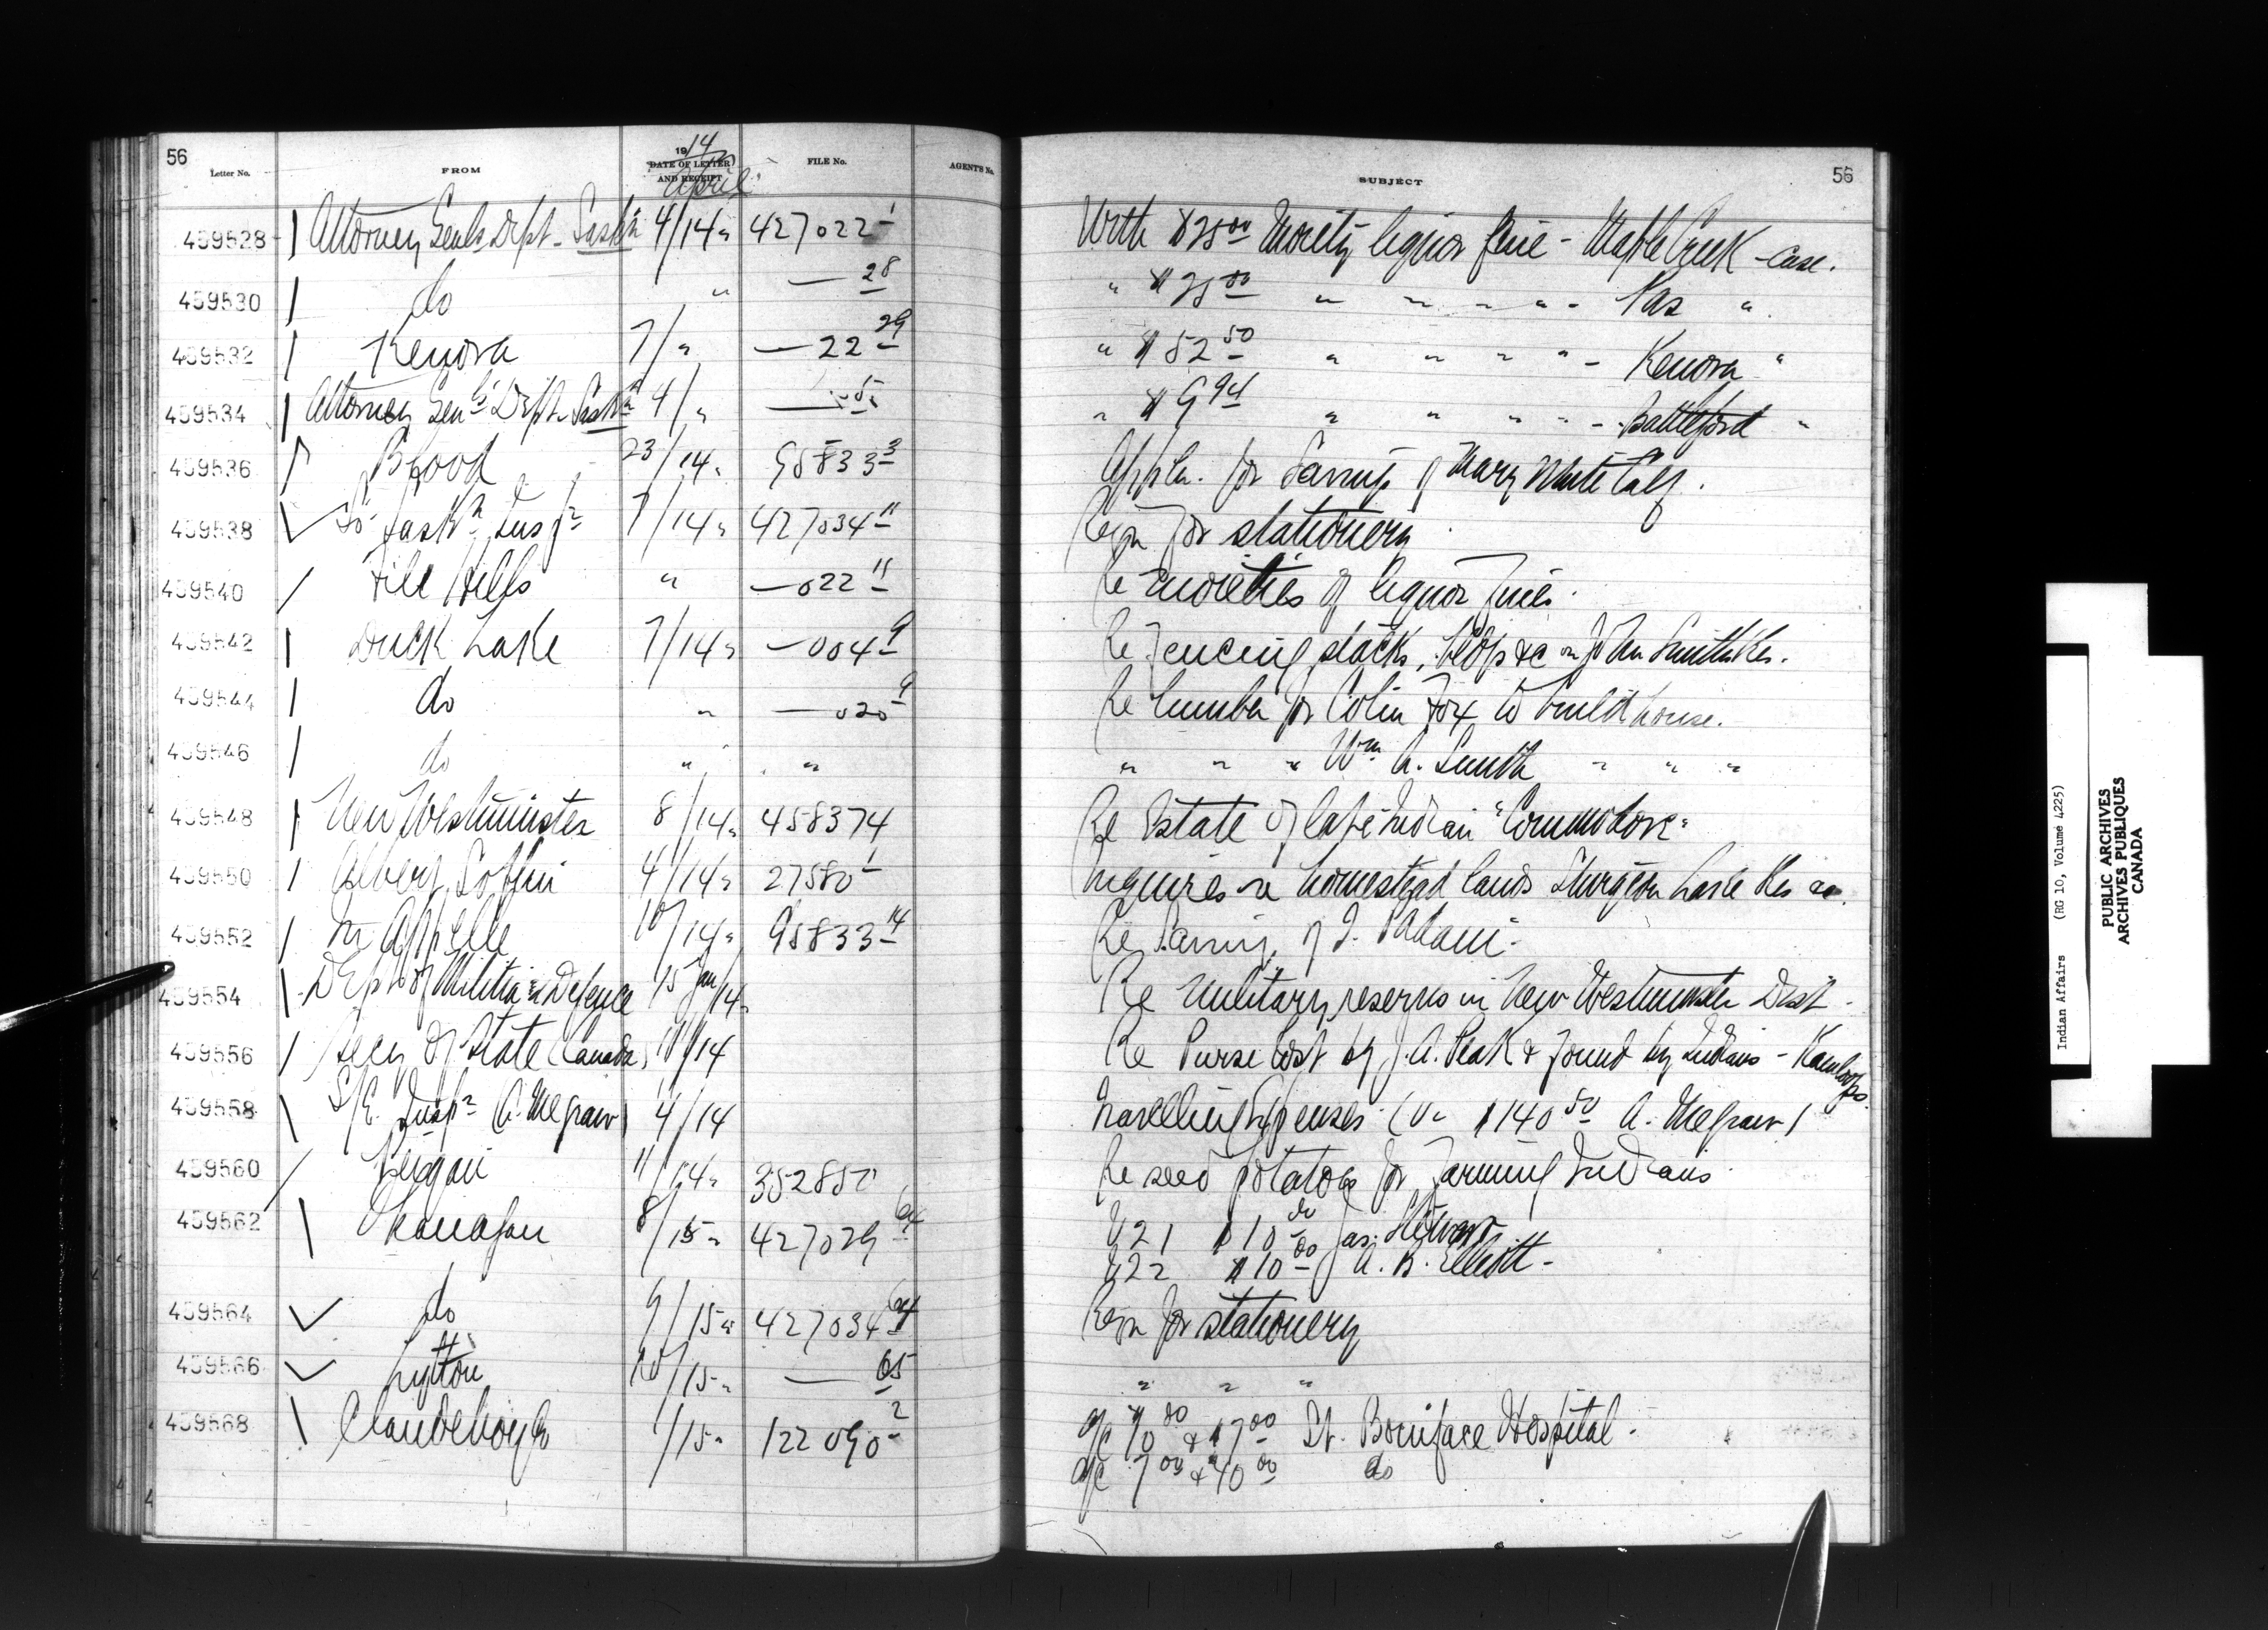 56
Letter No. FROM 1914 DATE OF LETTER AND RECEIPT April FILE No. AGENT'S No.
459528 Attorney Genls Dept - Saskn 4/14 427022-1
459530 do " — 28
459532 Kenora 7/" — 22-29
459534 Attorney Genls Dept Saskn 4/"
459536 Blood 23/14 95833-3
459538 So Saskn Inspr 7/14 427034-11
459540 File Hills " — 022-11
459542 Duck Lake 7/14 — 004-9
459544 do " — 020-9
459546 do " "
459548 New Westminster 8/14 458374
459550 4/14 27580-1
459552 Qu'Appelle 10/14 95833-14
459554 Dept of Militia & Defence 15 Jan/14
459556 Secy of State (Canada) 11/14
459558 Inspr (A. Megraw) 4/14
459560 Peigan 11/14 352850
459562 Okanagan 8/15 427029-64
459564 do 9/15 427034-64
459566 Lytton 10/15 — 65
459568 Clandeboye 1/15 122090-2
SUBJECT 56
With $25.00 Moiety liquor fine - Maple Creek - case.
" $25.00 " " " " - Pas "
" $52.50 " " " " - Kenora "
" $9.94 " " " " - Battleford "
Appln. for Earnings of Mary White Calf.
Reqn for stationery
Re moieties of liquor fines.
Re Fencing stacks, crops &c on John Smiths Res.
Re lumber for Colin Fox to build house.
" " " Wm A. Smith " " "
Re Estate of late Indian "Commodore"
Inquires re homestead lands Sturgeon Lake Res
Re Earnings of J.
Re military reserves in New Westminster Dist -
Re Purse lost by J. A. Peak & found by Indians - Kamloops.
Travelling Expenses (Vr $140.50 A. Megraw)
Re seed potatoes for farming Indians
V21 $10.00 Jas. Stewart
V22 $10.00 J. A. B. Elliott -
Reqn for stationery
" " "
a/c & $17.00 St. Boniface Hospital -
a/c 7.00 & 40.00 do
Indian Affairs (RG 10, Volume 4225)
PUBLIC ARCHIVES
ARCHIVES PUBLIQUES
CANADA